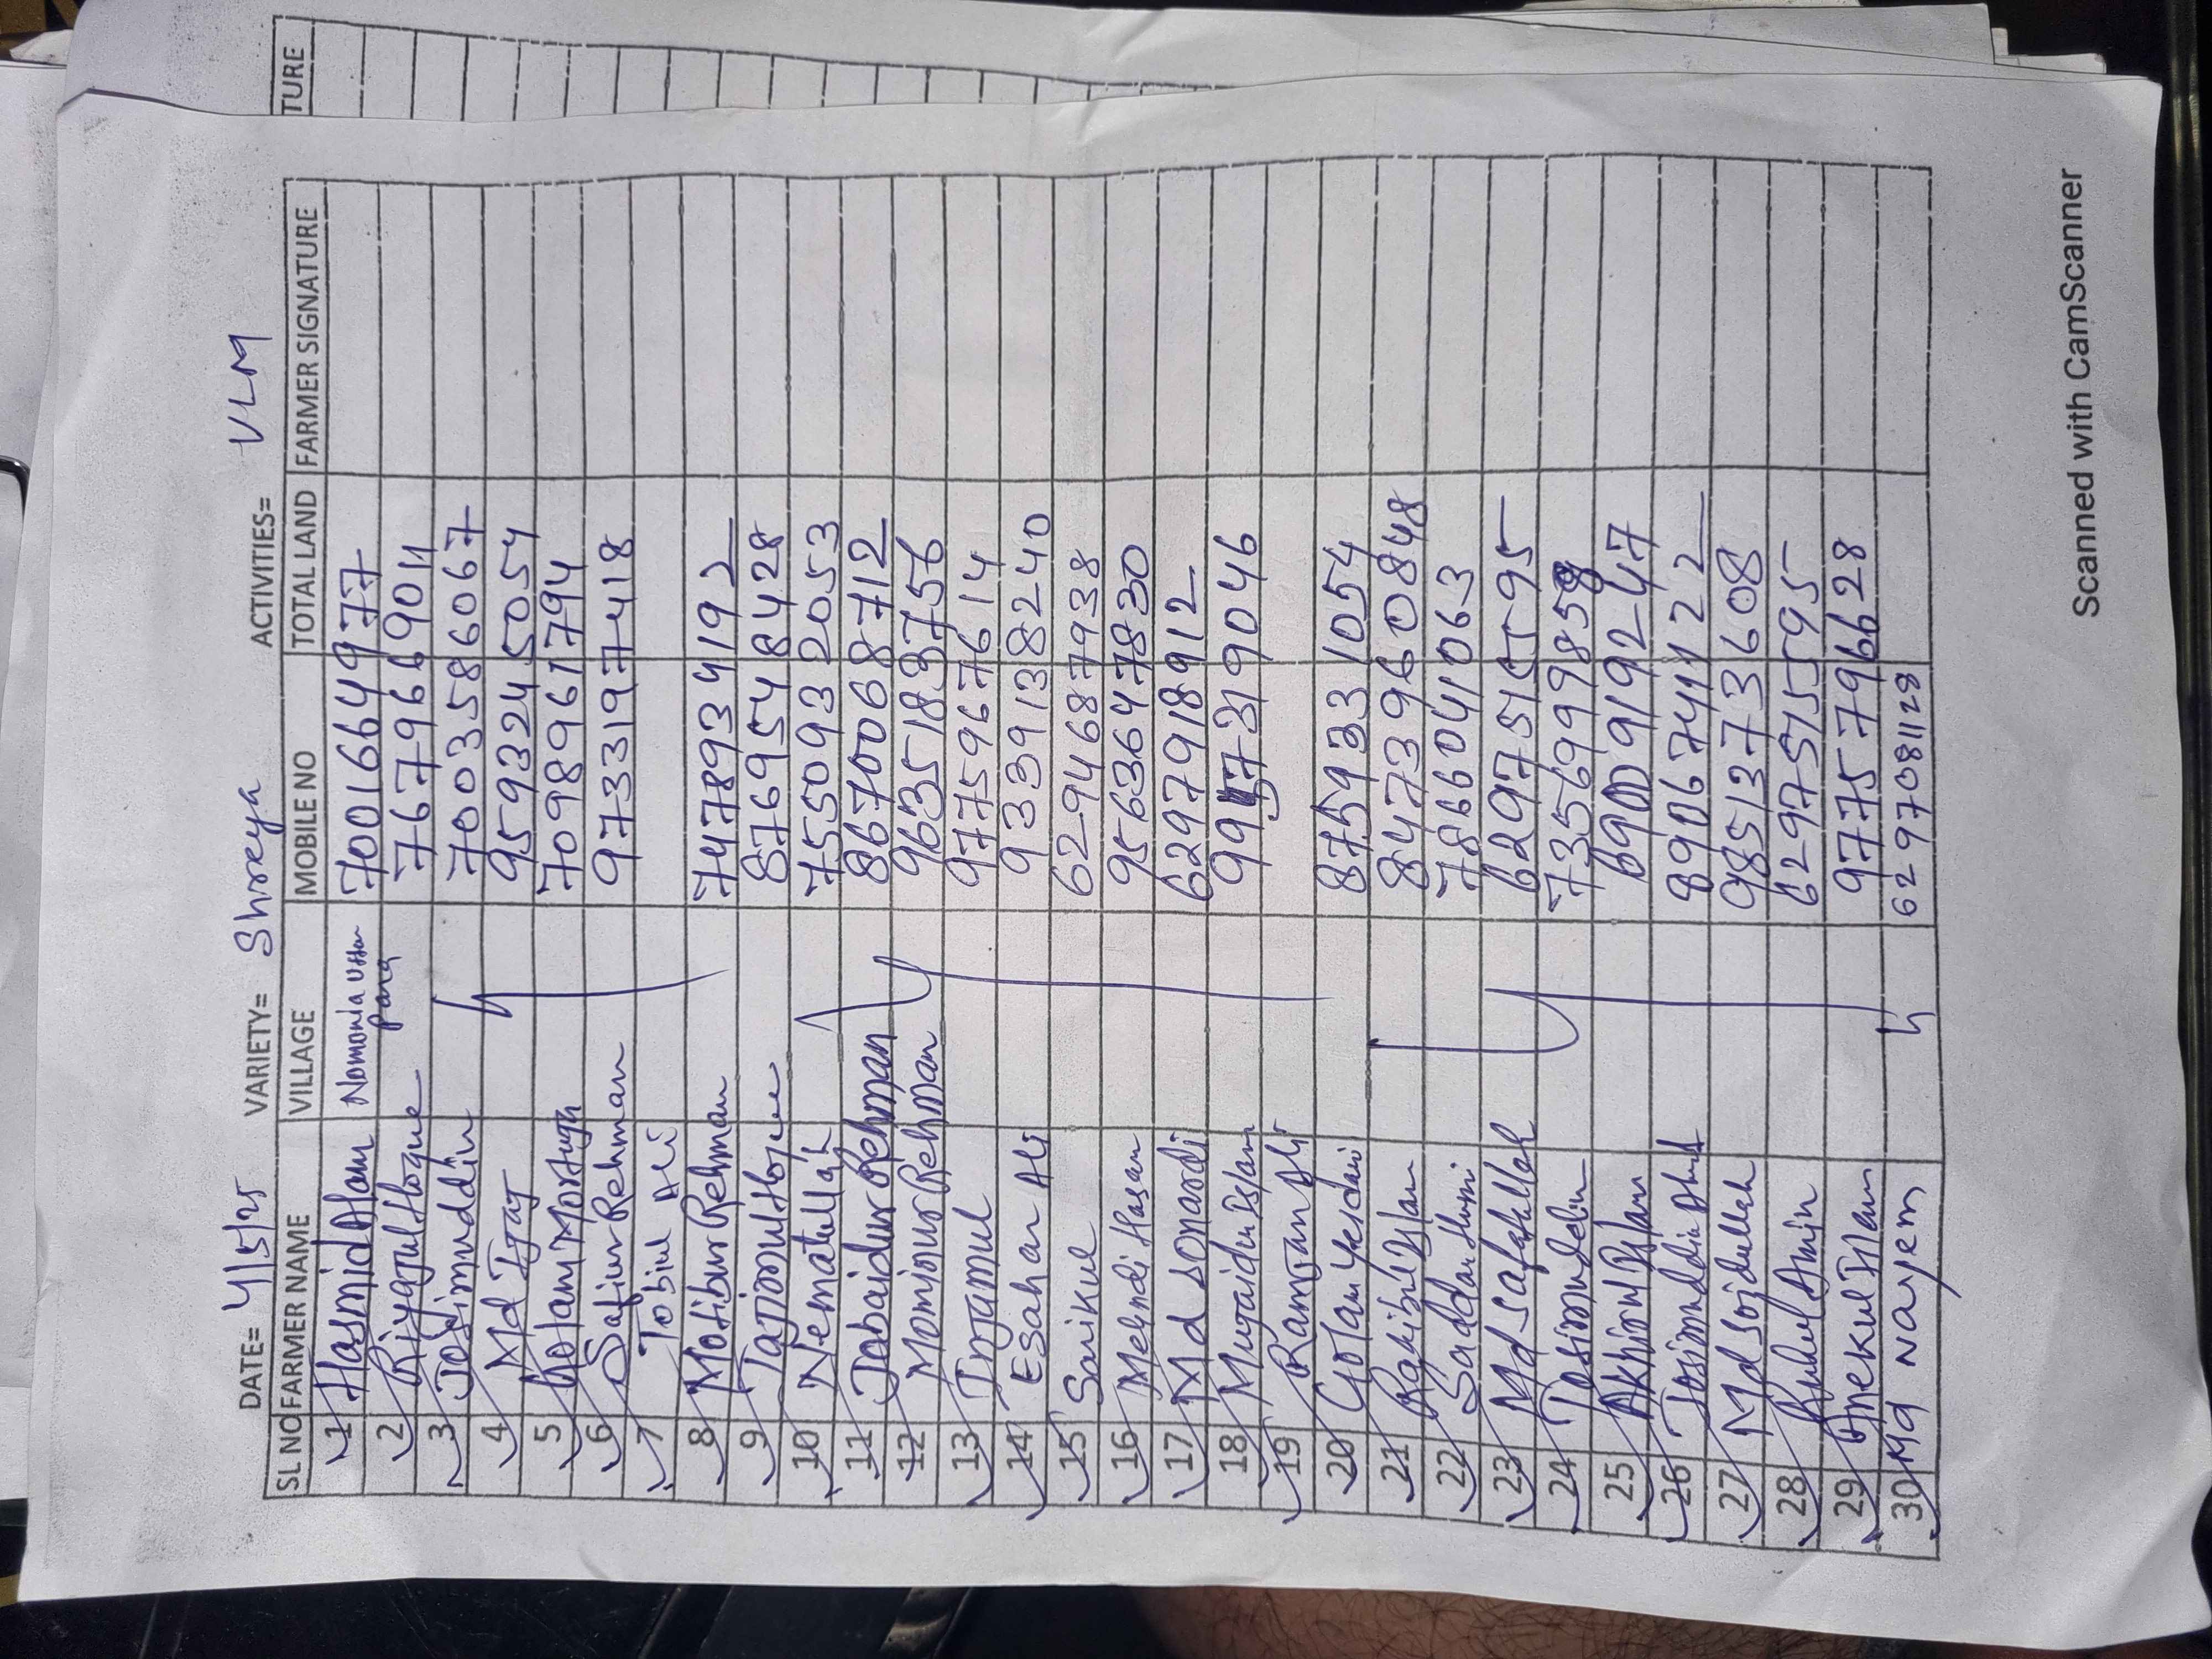 TURE
DATE= 4/5/25 VARIETY= Shreya ACTIVITIES= VLM
SL NO FARMER NAME VILLAGE MOBILE NO TOTAL LAND FARMER SIGNATURE
1 Hasmid Alam Nomonia Uttar para 7001664977
2 Riyajul Hoque 7679669011
3 Josimuddin 7003586067
4 Md Ijaj 9593245054
5 Golam Mortuja 7098961794
6 Safiur Rehman 9733197418
7 Tobiul Ali
8 Motibur Rehman 7478934192
9 Tajimul Hoque 8769548428
10 Nematullah 7550932053
11 Jobaidur Rehman 8670068712
12 Monijour Rehman 9635189756
13 Injamul 9775967614
14 Esahan Ali 9339138240
15 Sarikul 6294687938
16 Mehndi Hasan 9563647830
17 Md Sonardi 6297918912
18 Mujaidur Islam 9957319046
19 Ramjan Ali
20 Golam Yesdani 8759331054
21 Rakibul Islam 8473960848
22 Saddam Humi 7866041063
23 Md Safatullah 6297515595
24 Josimuden 7356999858
25 Akhirul Islam 6900919247
26 Josimuddin Ahmd 8906741122
27 Md Sojidullah 9851373608
28 Ruhul Amin 6297515595
29 Anekul Islam 9775796628
30 Md Nayem 6297081128
Scanned with CamScanner